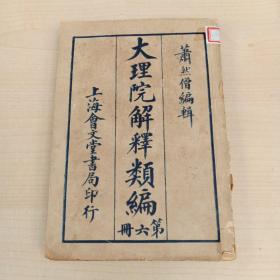 蕭然僧編輯
大理院解釋類編
第六冊
上海會文堂書局印行